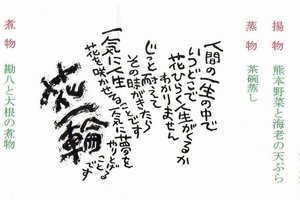 揚物　熊本野菜と海老の天ぷら
蒸物　茶碗蒸し
人間の一生の中で
いつどこで
花ひらく人生がくるか
わかりません
じっと耐えて
その時がきたら
一気に人生
花を咲かせる
一気に夢を
やりとげる
ことです
花一輪
煮物　勘八と大根の煮物